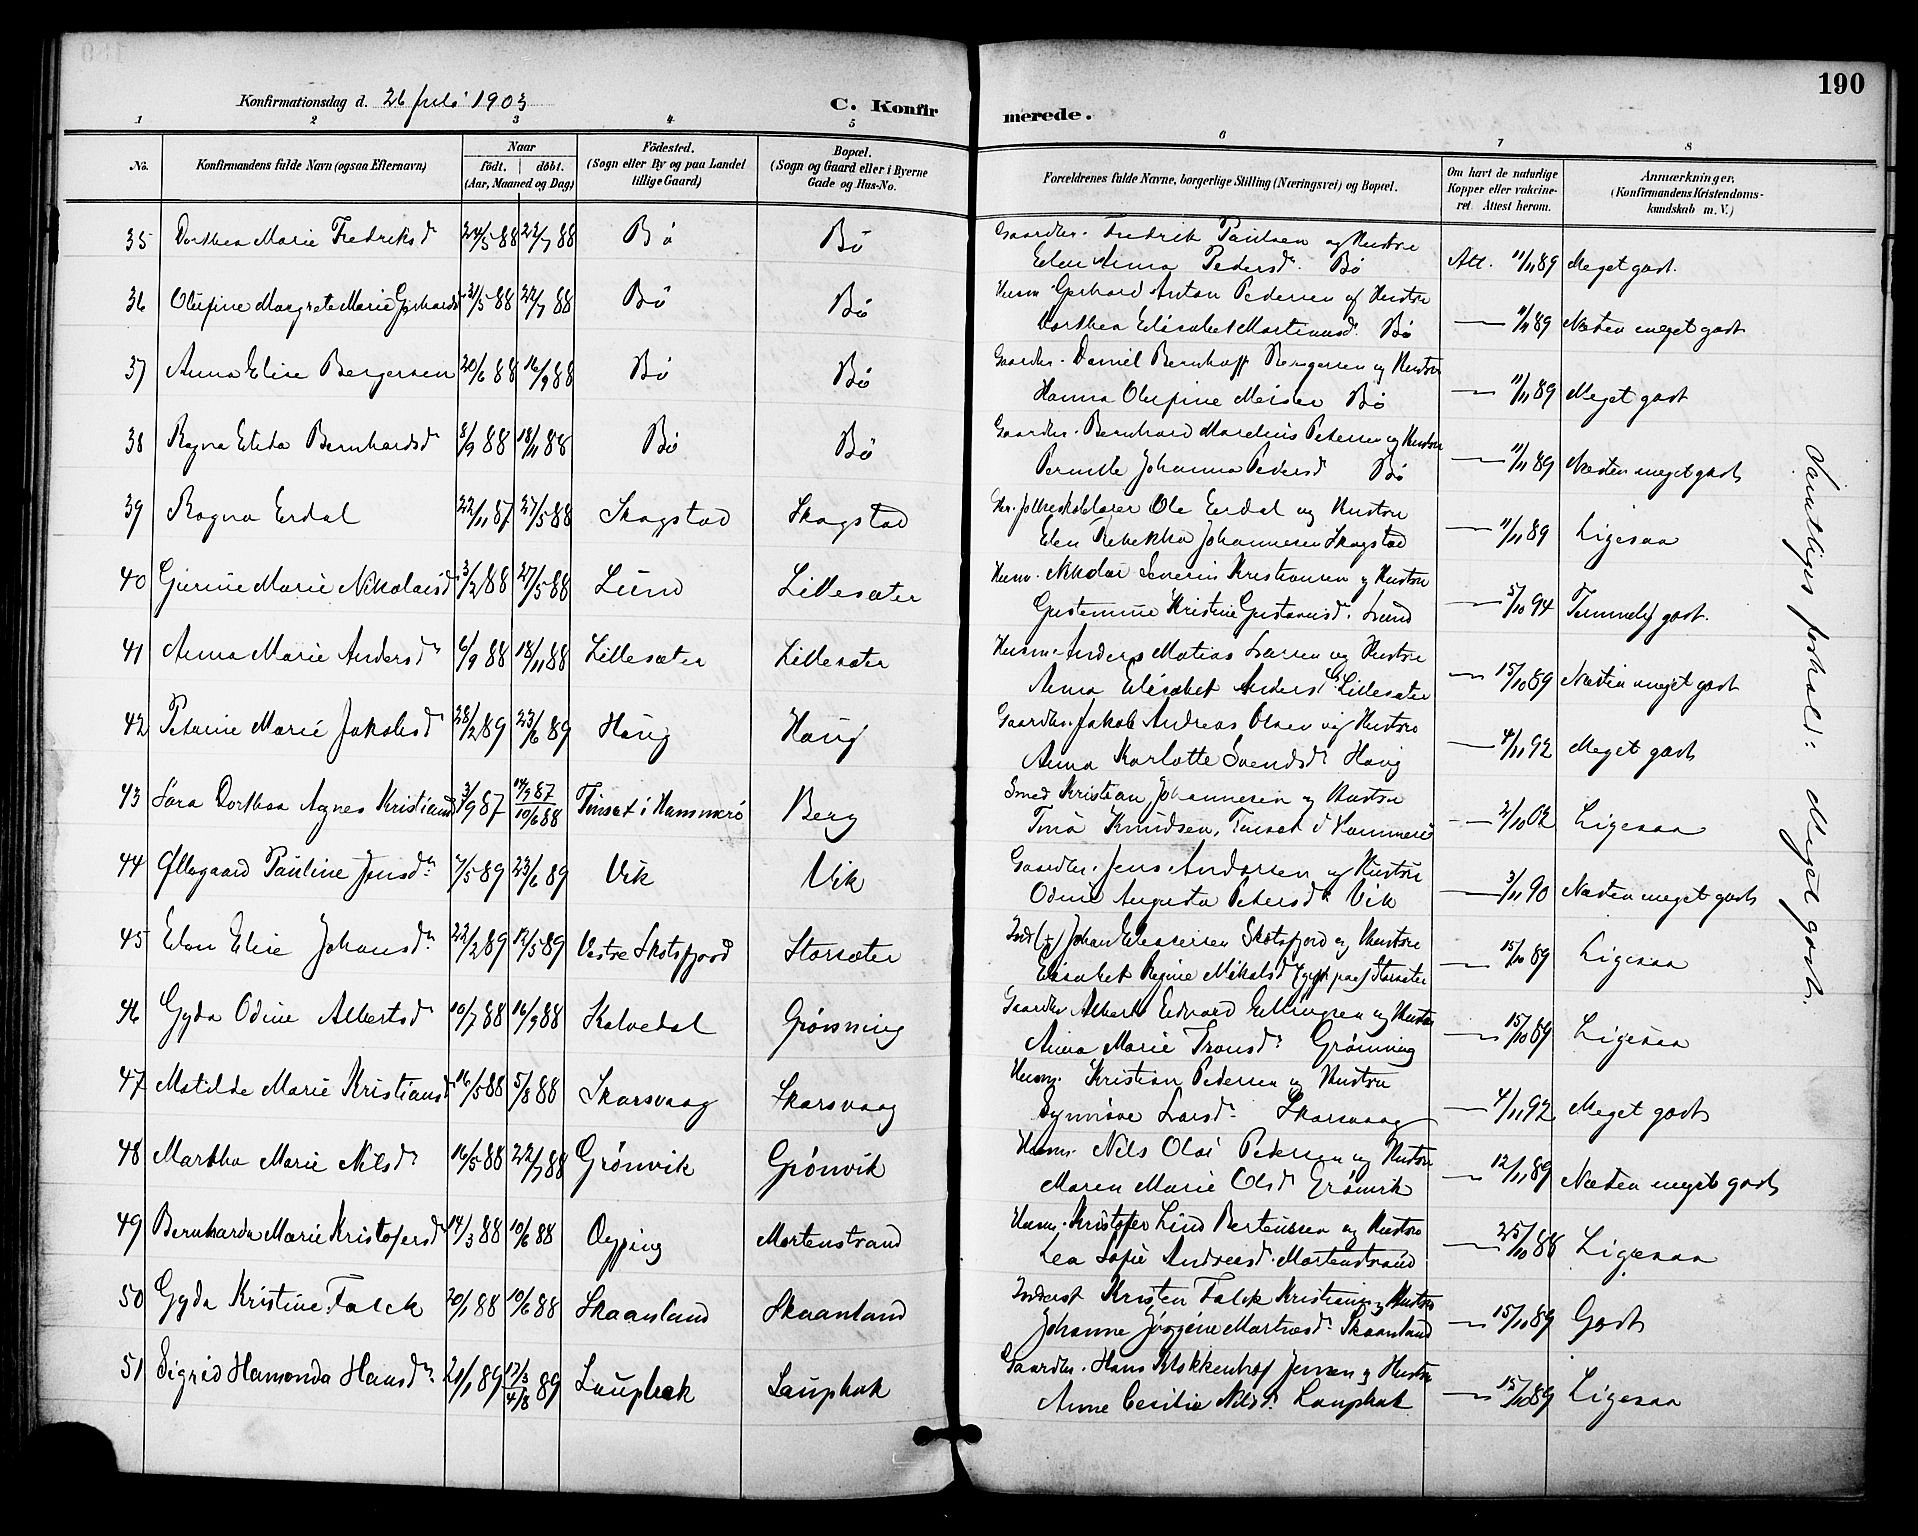 190
Konfirmationsdag d. 26 juli 1903
C. Konfirmerede.
1 2 3 4 5 6 7 8
No. Konfirmandens fulde Navn (ogsaa Efternavn) Naar födt. döbt. (Aar, Maaned og Dag) Födested. (Sogn eller By og paa Landet tillige Gaard) Bopæl. (Sogn og Gaard eller i Byerne Gade og Hus-No. Forældrenes fulde Navne, borgerlige Stilling (Næringsvei) og Bopæl. Om havt de naturlige Kopper eller vakcineret. Attest herom. Anmærkninger, (Konfirmandens Kristendomskundskab m. V.)
35 Dorthea Marie Fredriksd 24/5 88 22/7 88 Bö Bö Gaardbr. Fredrik Paulsen og Hustru
Elen Anna Pedersd. Bö Att. 11/11 89 Meget godt.
36 Olufine Margrete Marie Gerhardsd 31/5 88 22/7 88 Bö Bö Husm. Gerhard Anton Pedersen og Hustru
Dorthea Elisabet Martinusd. Bö — 11/11 89 Næsten meget godt
37 Anna Elise Bergersen 20/6 88 16/9 88 Bö Bö Gaardbr. Daniel Bernhoff Bergersen og Hustru
Hanna Olufine Meier Bö — 11/11 89 Meget godt
38 Ragna Elida Bernhardsd 8/9 88 18/11 88 Bö Bö Gaardbr. Bernhard Marelius Petersen og Hustru
Pernille Johanna Pedersd Bö — 11/11 89 Næsten meget godt
39 Ragna Erdal 22/11 87 27/5 88 Skagstad Skagstad folkeskolelærer Ole Erdal og Hustru
Elen Rebekka Johannesen Skagstad — 11/11 89 Ligesaa
40 Gurine Marie Nikolaisd 3/2 88 27/5 88 Lund Lillesæter Husm. Nikolai Severin Kristiansen og Hustru
Kristine Gustavusd. Lund — 5/10 94 Temmelig godt.
41 Anna Marie Andersd 6/9 88 18/11 88 Lillesæter Lillesæter Husm. Anders Matias Larsen og Hustru
Anna Elisabet Andersd Lillesæter — 15/10 89 Næsten meget godt
42 Petrine Marie Jakobsd 28/2 89 23/6 89 Haug Haug Gaardbr. Jakob Andreas Olsen og Hustru
Anna Karlotte Svendsd Haug — 4/11 92 Meget godt
43 Sara Dorthea Agnes Kristiansd 3/9 87 14/9 87 10/6 88 Tinset i Hammerö Berg Smed Kristian Johannesen og Hustru
Trina Knudsen, Tinset i Hammerö — 2/10 02 Ligesaa
44 Øllegaard Pauline Jensd. 7/5 89 23/6 89 Vik Vik Gaardbr. Jens Andersen og Hustru
Odine Augusta Petersd Vik — 3/11 90 Næsten meget godt
45 Elen Elise Johansd 22/2 89 12/5 89 Vestre Skotsfjord Storsæter Inds (†) Johan Eliassen Skotsfjord og Hustru
Elisabet Regine Mikalsd (gift paa) Storsæter — 15/10 89 Ligesaa
46 Gyda Odine Albertsd 10/7 88 16/9 88 Kalvedal Grönning Gaardbr. Albert Edvard Ellingsen og Hustru
Anna Marie Tronsd. Grönning — 15/10 89 Ligesaa
47 Matilde Marie Kristiansd 16/5 88 5/8 88 Skarsvaag Skarsvaag Husm. Kristian Pedersen og Hustru
Synnöve Larsd. Skarsvaag — 4/11 92 Meget godt
48 Martha Marie Nilsd. 16/5 88 22/7 88 Grönvik Grönvik Husm. Nils Olai Pedersen og Hustru
Maren Marie Olsd Grönvik — 12/11 89 Næsten meget godt
49 Bernharda Marie Kristofersd 14/3 88 10/6 88 Oppeng Mortenstrand Husm. Kristofer Lind Berteussen og Hustru
Lea Sofie Andreasd. Mortenstrand — 25/10 88 Ligesaa
50 Gyda Kristine Falck 20/1 88 10/6 88 Skaanland Skaanland Inderst Kristen Falck Kristiansen og Hustru
Johanne Jörgine Martinsd. Skaanland — 15/10 89 Godt
51 Sigrid Hamonda Hansd. 20/1 89 17/3 4/8 89 Laupbak Laupbak Gaardbr. Hans Klokkenhof Jensen og Hustru
Anne Cecilie Nilsd. Laupbak — 15/10 89 Ligesaa
Samtliges forhold: Meget godt.